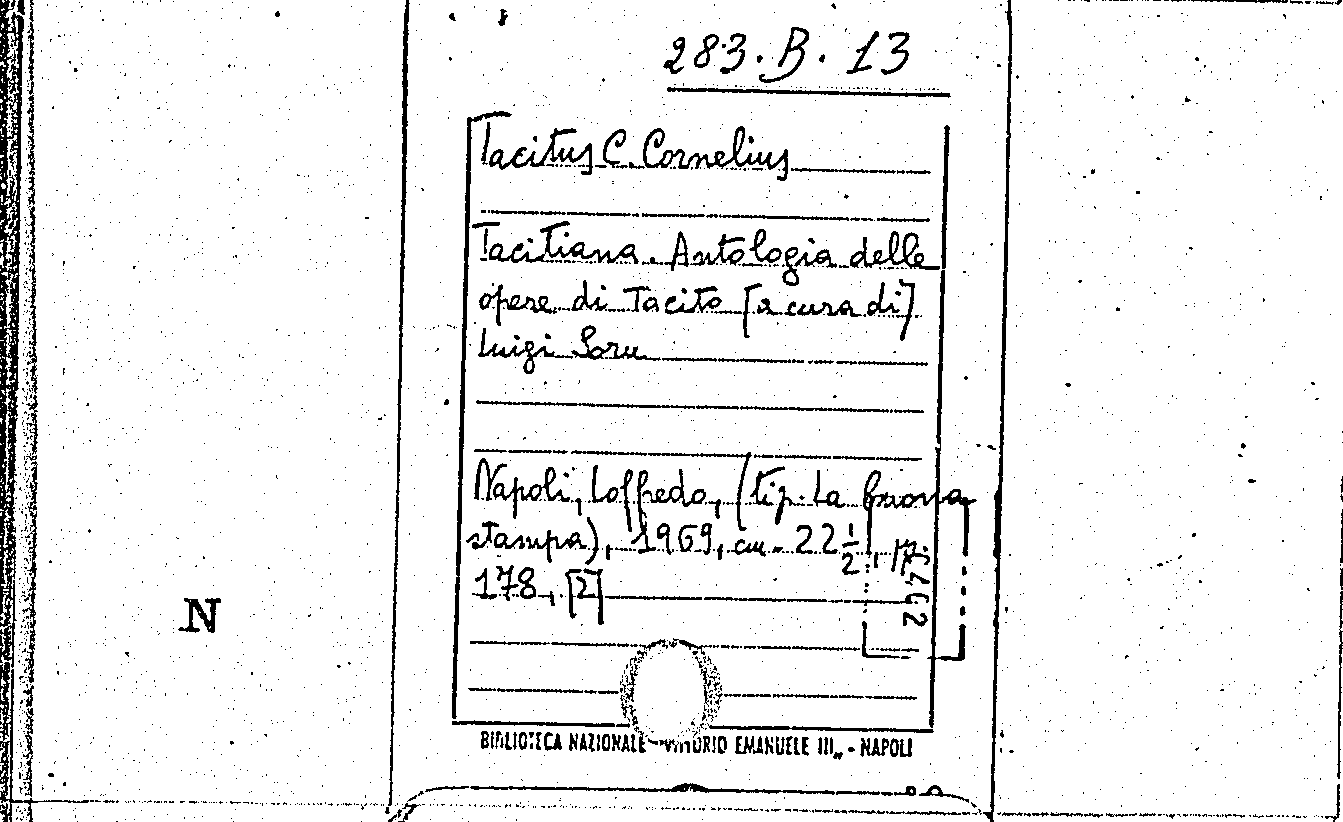 283. B. 13
Tacitus C. Cornelius
Tacitiana. Antologia delle
opere di Tacito [a cura di]
Luigi Soru
Napoli, Loffredo, (tip. La buona
stampa), 1969, cm. 22 1/2, pp.
178, [2]
N
BIBLIOTECA NAZIONALE "VITTORIO EMANUELE III„ - NAPOLI